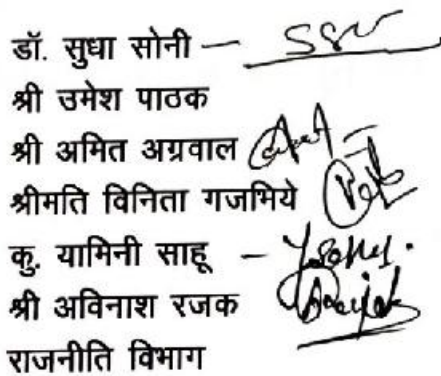 डॉ. सुधा सोनी —
श्री उमेश पाठक
श्री अमित अग्रवाल
श्रीमति विनिता गजभिये
कु. यामिनी साहू —
श्री अविनाश रजक
राजनीति विभाग